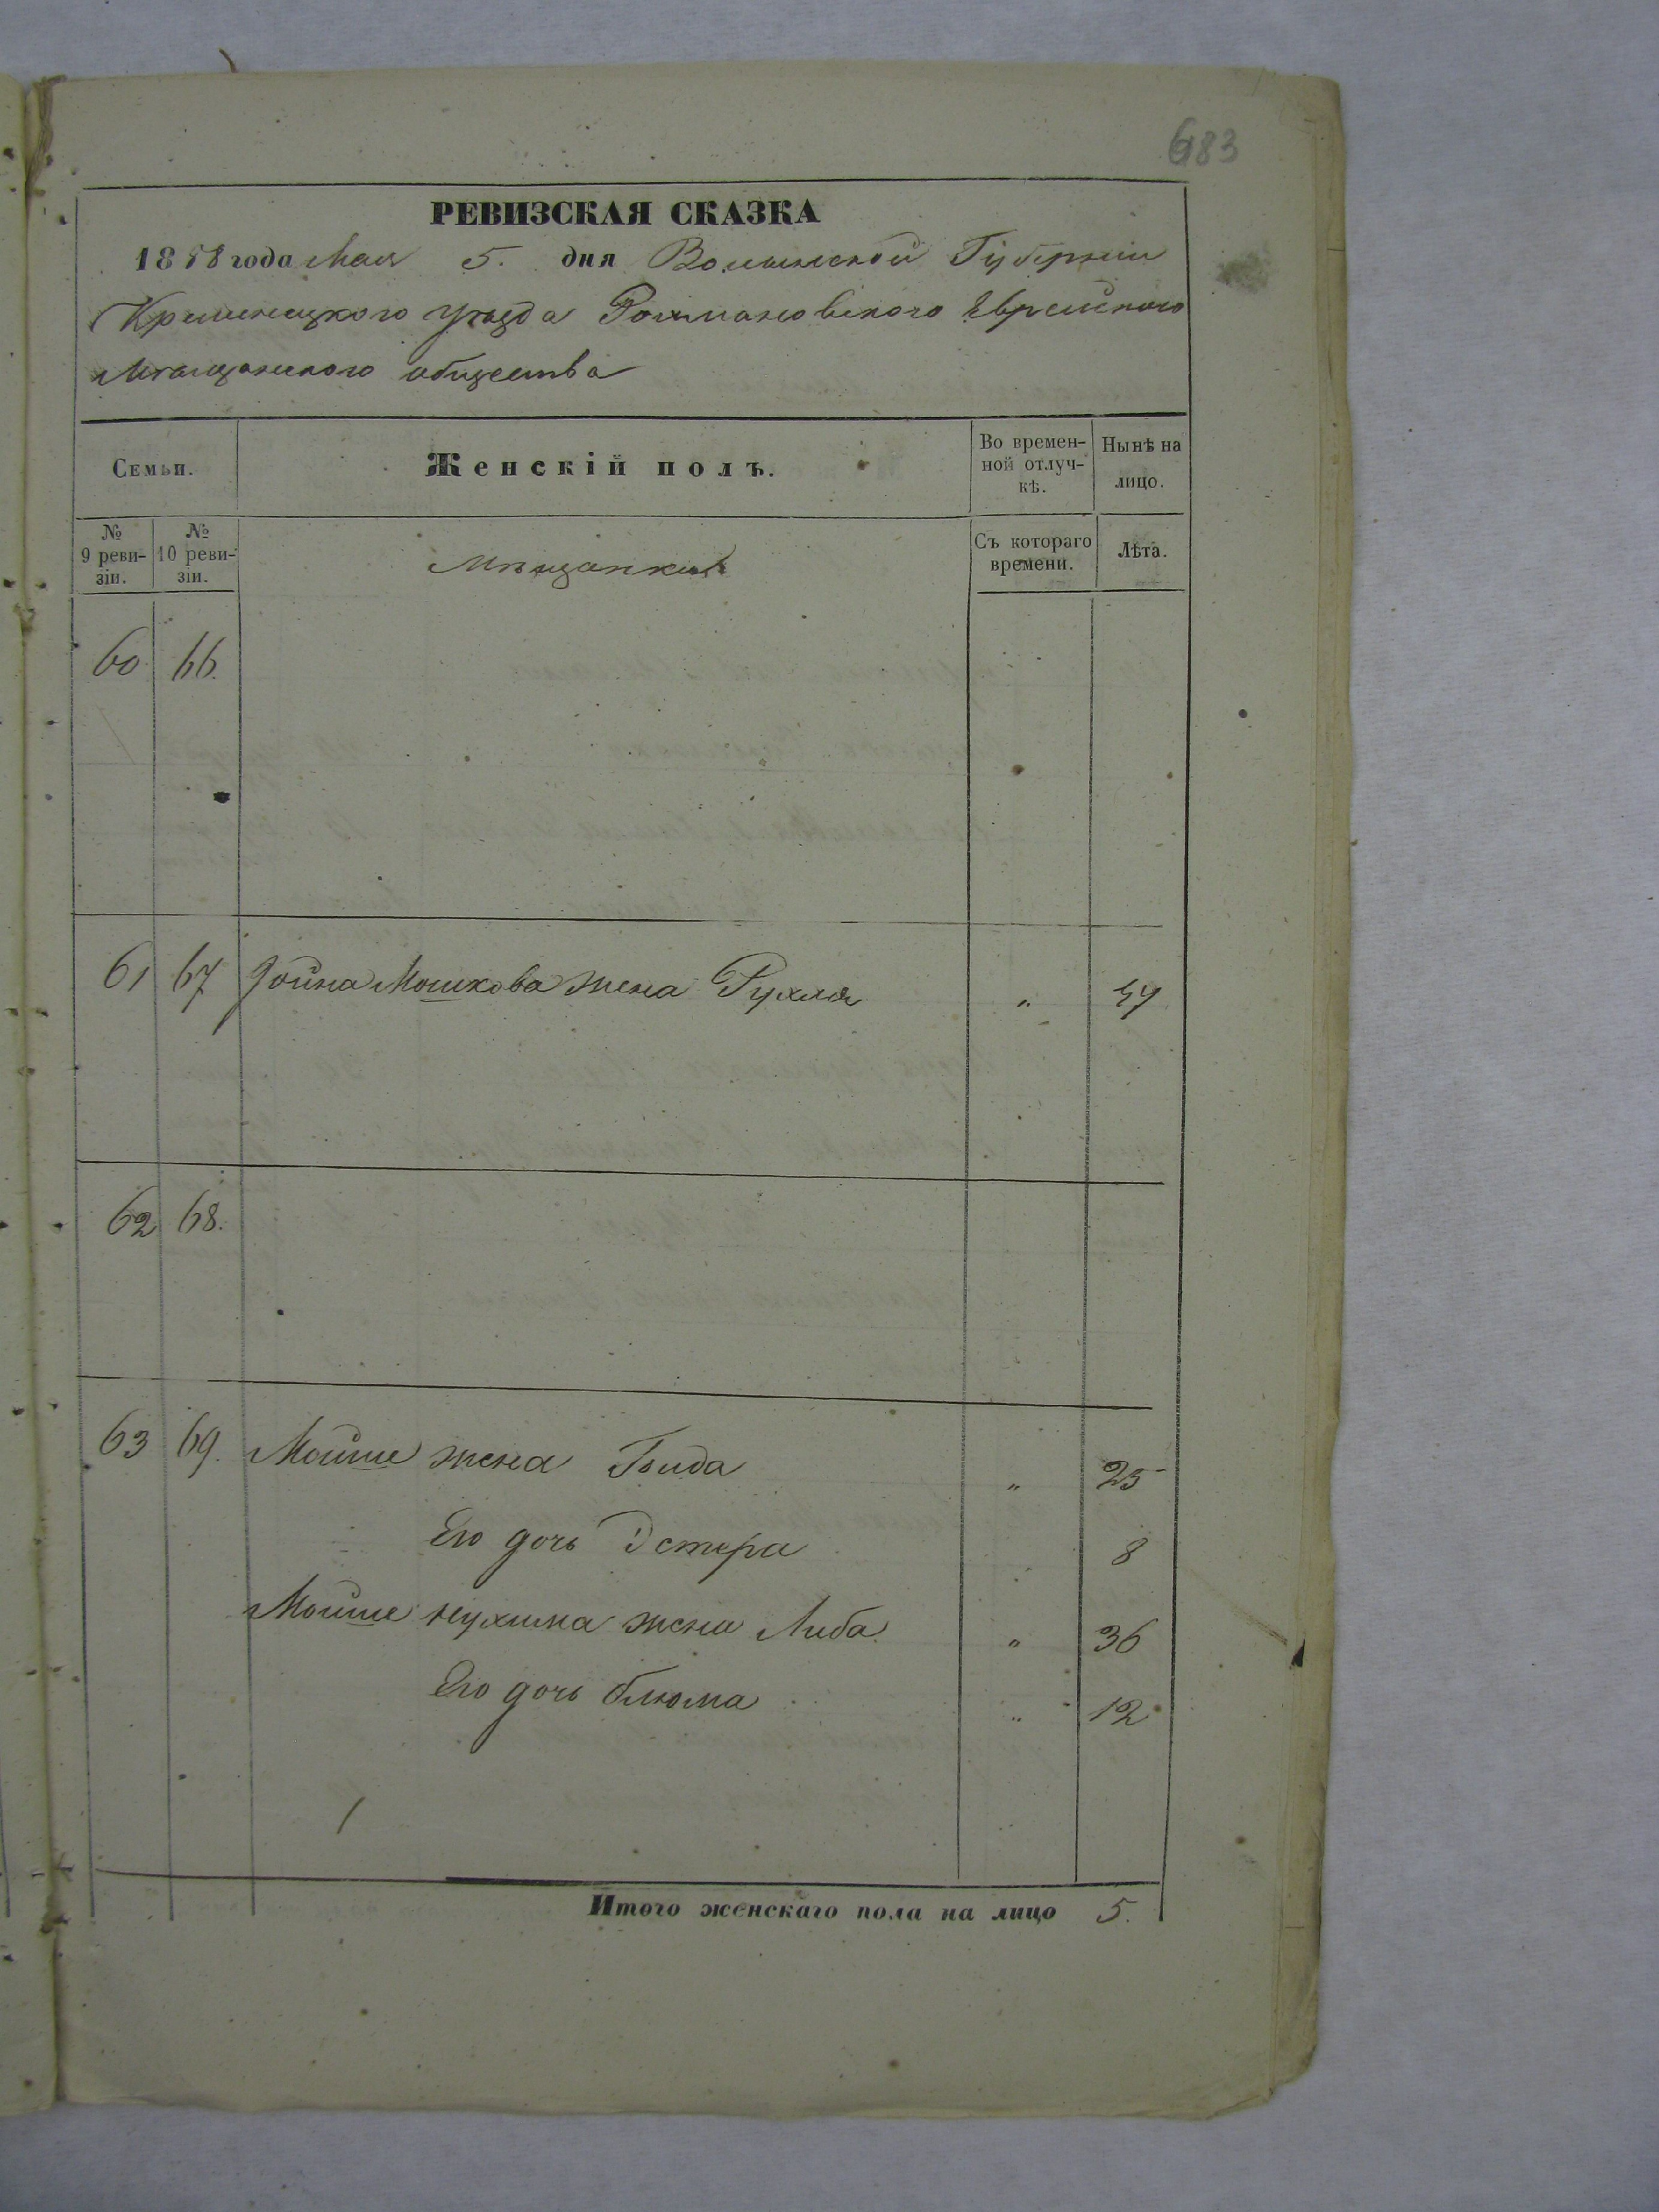 683
РЕВИЗСКАЯ СКАЗКА
1858 года Мая 5. дня Волынской Губернии
Кременецкого уезда Рохмановского Еврейского
Мещанского общества
Семьи. Женскій полъ. Во времен-ной отлуч-кѣ. Нынѣ на лицо.
№ 9 реви-зіи. № 10 реви-зіи. Мѣщанки Съ котораго времени. Лѣта.
60 66.
61 67 Иойна Мошкова жена Рухля " 54
62 68.
63 69. Мойше жена Гинда " 25
Его дочь Эстера 8
Мойше Нухима жена Либа " 36
Его дочь блюма " 12
Итого женскаго пола на лицо 5.